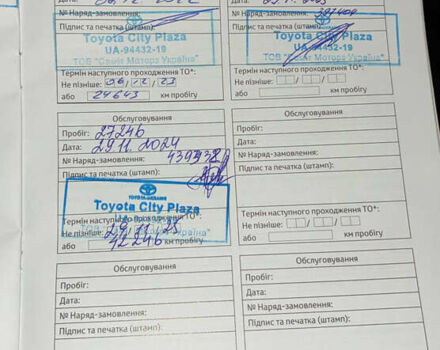 № Наряд-замовлення:
Підпис та печатка (штамп):
TOYOTA-UKRAINE
Toyota City Plaza
UA-94432-19
Термін наступного проходження ТО*:
Не пізніше:
або 24643 км пробігу
№ Наряд-замовлення:
Підпис та печатка (штамп):
Toyota City Plaza
UA-94432-19
Термін наступного проходження ТО*:
Не пізніше:
або км пробігу
Обслуговування
Пробіг: 27246
Дата: 29.11.2024
№ Наряд-замовлення:
Підпис та печатка (штамп):
TOYOTA-UKRAINE
Toyota City Plaza
Термін наступного проходження ТО*:
Не пізніше: 29 11 25
або 42246 км пробігу
Обслуговування
Пробіг:
Дата:
№ Наряд-замовлення:
Підпис та печатка (штамп):
Термін наступного проходження ТО*:
Не пізніше:
або км пробігу
Обслуговування
Пробіг:
Дата:
№ Наряд-замовлення:
Підпис та печатка (штамп):
Обслуговування
Пробіг:
Дата:
№ Наряд-замовлення:
Підпис та печатка (штамп):